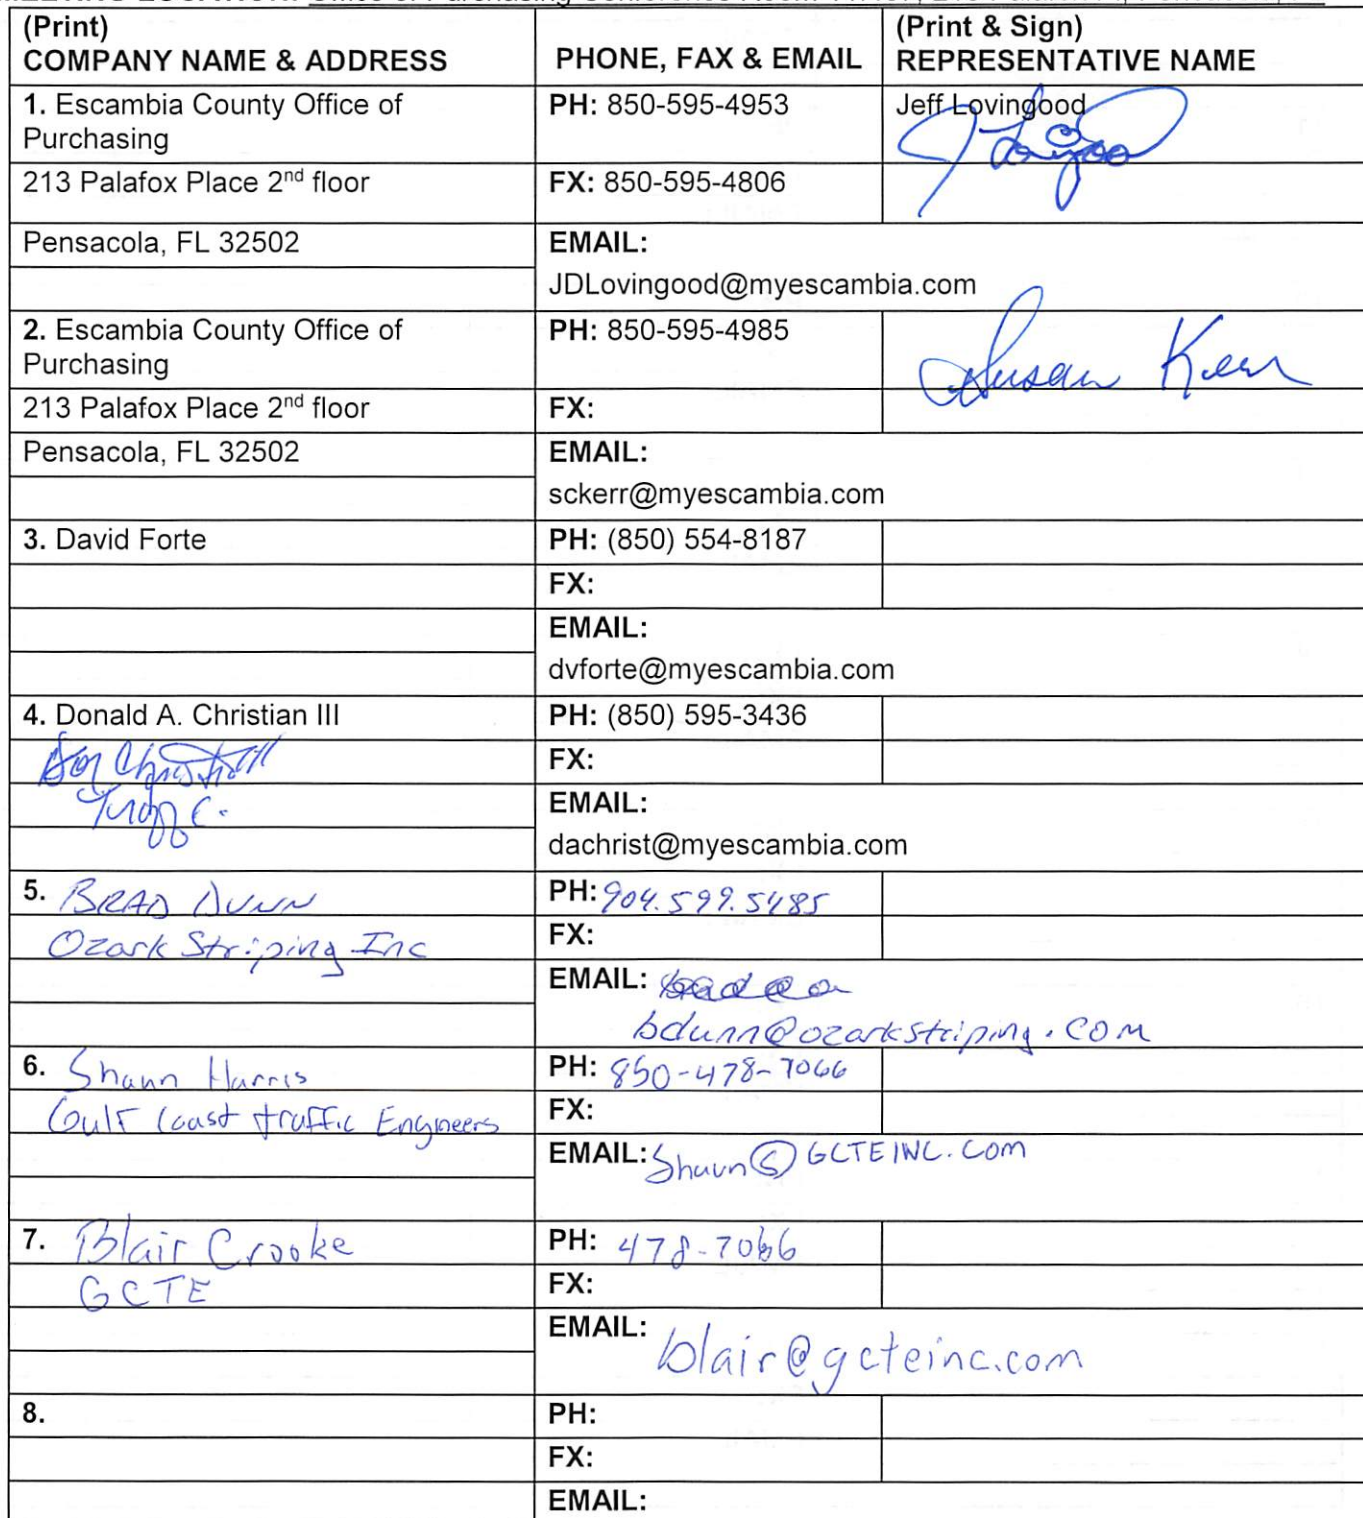 (Print)
COMPANY NAME & ADDRESS
PHONE, FAX & EMAIL
(Print & Sign)
REPRESENTATIVE NAME
1. Escambia County Office of
Purchasing
PH: 850-595-4953
Jeff Lovingood
213 Palafox Place 2nd floor
FX: 850-595-4806
Pensacola, FL 32502
EMAIL:
JDLovingood@myescambia.com
2. Escambia County Office of
Purchasing
PH: 850-595-4985
Susan Kerr
213 Palafox Place 2nd floor
FX:
Pensacola, FL 32502
EMAIL:
sckerr@myescambia.com
3. David Forte
PH: (850) 554-8187
FX:
EMAIL:
dvforte@myescambia.com
4. Donald A. Christian III
PH: (850) 595-3436
FX:
EMAIL:
dachrist@myescambia.com
5. BRAD DUNN
PH: 904.599.5485
Ozark Striping Inc
FX:
EMAIL:
bdunn@ozarkstriping.com
6. Shaun Harris
PH: 850-478-7066
Gulf Coast traffic Engineers
FX:
EMAIL: Shaun@GCTEINC.com
7. Blair Crooke
PH: 478-7066
GCTE
FX:
EMAIL:
blair@gcteinc.com
8.
PH:
FX:
EMAIL: